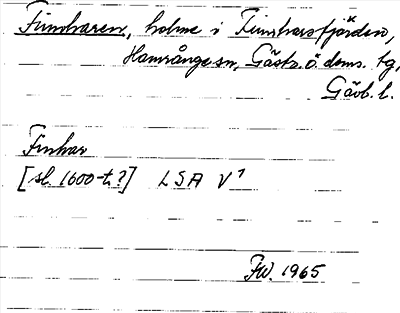 Finnharen, holme i Finnharsfjärden,
Hamrånge sn, Gästr. ö. doms. tg,
Gävb. l.
Finhar
[sl. 1600-t.?] LSA V¹
FW. 1965